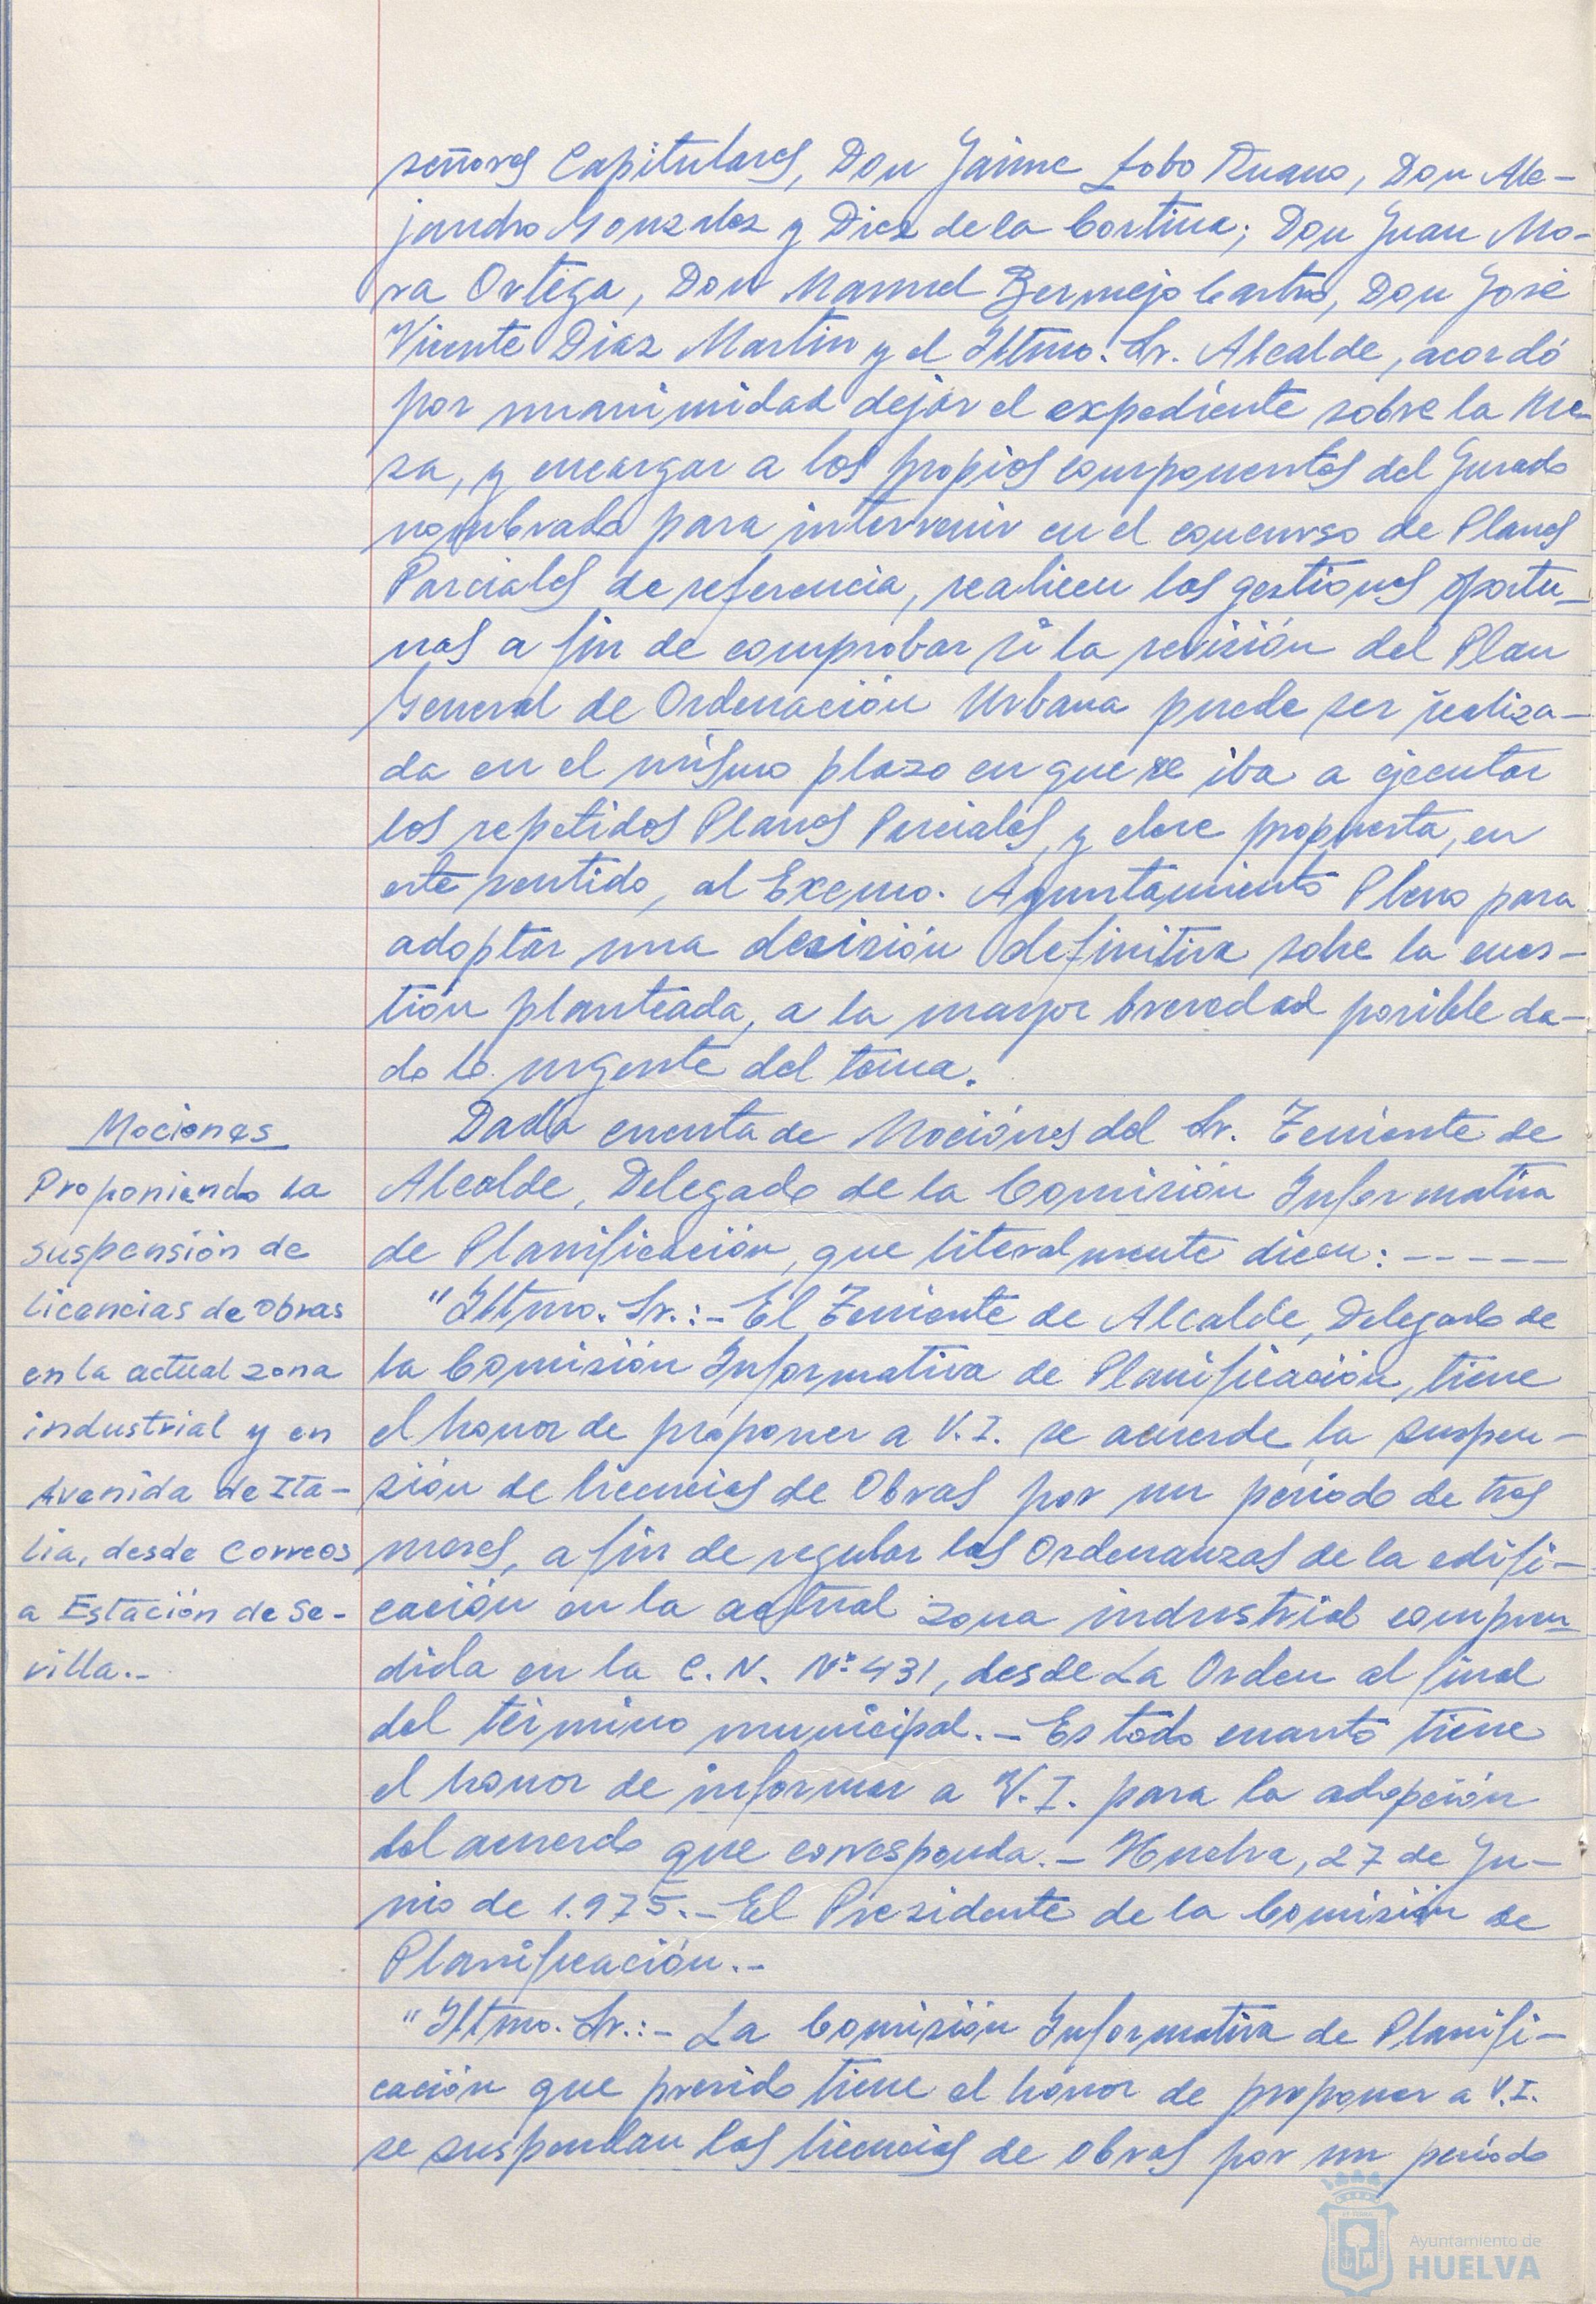 señores Capitulares, Don Jaime Lobo Ruano, Don Ale-
jandro Gonzalez y Diez de la Cortina; Don Juan Mo-
ra Ortega, Don Manuel Bermejo Castro, Don José
Vicente Diaz Martin y el Iltmo. Sr. Alcalde, acordó
por unanimidad dejar el expediente sobre la Me-
sa, y encargar a los propios componentes del Jurado
nombrado para intervenir en el concurso de Planes
Parciales de referencia, realicen las gestiones oportu-
nas a fin de comprobar si la revisión del Plan
General de Ordenación Urbana puede ser realiza-
da en el mismo plazo en que se iba a ejecutar
los repetidos Planes Parciales, y eleve propuesta, en
este sentido, al Excmo. Ayuntamiento Pleno para
adoptar una decisión definitiva sobre la cues-
tión planteada, a la mayor brevedad posible da-
do lo urgente del tema.
Mociones
Proponiendo la
suspensión de
licencias de Obras
en la actual zona
industrial y en
Avenida de Ita-
lia, desde Correos
a Estación de Se-
villa.-
Dada cuenta de Mociónes del Sr. Teniente de
Alcalde, Delegado de la Comisión Informativa
de Planificación, que literalmente dicen: -----
"Iltmo. Sr.:- El Teniente de Alcalde, Delegado de
la Comisión Informativa de Planificación, tiene
el honor de proponer a V.I. se acuerde la suspen-
sión de licencias de Obras por un período de tres
meses, a fin de regular las Ordenanzas de la edifi-
cación en la actual zona industrial compren-
dida en la C.N. Nº 431, desde La Orden al final
del término municipal.- Es todo cuanto tiene
el honor de informar a V.I. para la adopción
del acuerdo que corresponda.- Huelva, 27 de Ju-
nio de 1.975.- El Presidente de la Comisión de
Planificación.-
"Iltmo. Sr.:- La Comisión Informativa de Planifi-
cación que presido tiene el honor de proponer a V.I.
se suspendan las licencias de obras por un período
Ayuntamiento de
HUELVA